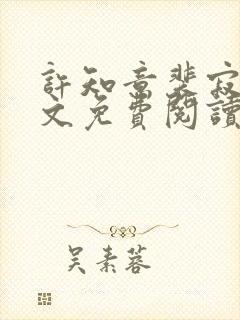 許知意裴寂
文免費閱讀
吴素蓉